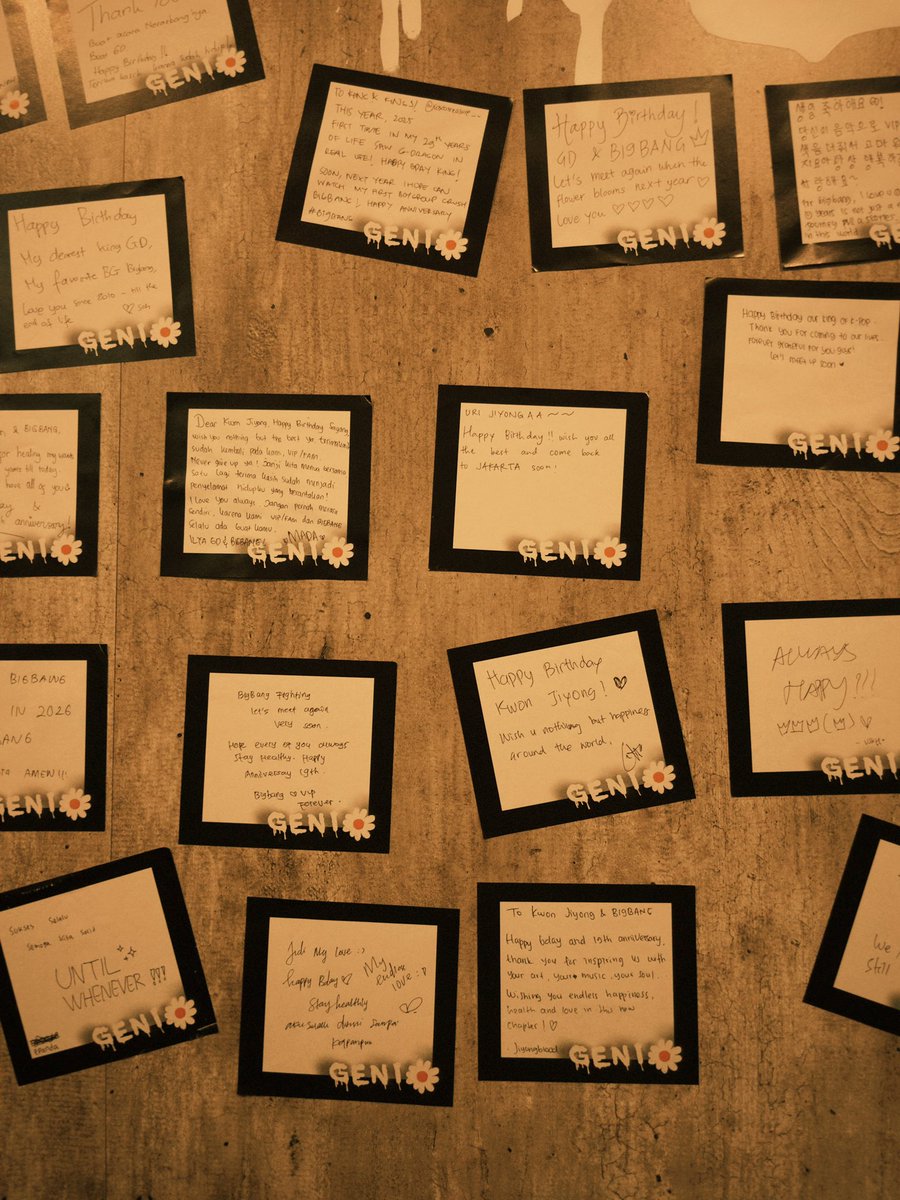 Thank You
Buat acara Noraebang nya
Buat GD
Happy Birthday !!
Terima kasih
GENI
TO KANG K KINGS!
THIS YEAR, 2025
FIRST TIME IN MY 29th YEARS
OF LIFE SAW G-DRAGON IN
REAL LIFE! HAPPY BDAY KING!
SOON, NEXT YEAR I HOPE CAN
WATCH MY FIRST BOYGROUP CRUSH
BIGBANG! HAPPY ANNIVERSARY
#BIGBANG
GENI
Happy Birthday!
GD & BIGBANG
Let's meet again when the
flower blooms next year ♡
Love you ♡♡♡♡
GENI
생일 축하해요 GD!
당신의 음악으로 VIP
for bigbang, i love u
19 years is not just a
journey
in this world
GE
Happy Birthday
My dearest king GD,
My favorite BG Bigbang,
Love you since 2010 - till the
end of life ♡
GENI
Happy Birthday our king of K-POP.
Thank you for coming to our lives.
Forever grateful for you guys!
Let's meet up soon ♥
GENI
& BIGBANG,
for healing my
years till today.
have all of you
&
anniversary!
GENI
Dear Kwon Jiyong, Happy Birthday
Wish you nothing but the best ya terimakasih
sudah kembali pada kami, VIP/FAM.
Never give up ya! Janji kita menua bersama
satu lagi terima kasih sudah menjadi
penyelamat hidupku yang berantakan!
I love you always. Jangan pernah merasa
Sendiri, karena kami VIP/FAM dan BIGBANG
Selalu ada buat kamu.
ILYA GD & BIGBANG MADA
GENI
URI JIYONGAA ~~
Happy Birthday!! wish you all
the best and come back
to JAKARTA soon!
GENI
BIGBANG
IN 2026
ANG
AMEN!!
GENI
BigBang Fighting
let's meet again
very soon.
Hope every of you always
Stay Healthy. Happy
Anniversary 19th.
Bigbang ♡ VIP
Forever.
GENI
Happy Birthday
Kwon Jiyong! ♡
Wish u nothing but happiness
around the world.
GENI
ALWAYS
HAPPY!!!
GENI
Sukses Selalu
Semoga kita
UNTIL
WHENEVER !!!
GENI
Jidi My Love :)
happy Bday ♡ My
endless
love :)
Stay healthy
aku selalu disini Sampai
Kapanpun
GENI
To Kwon Jiyong & BIGBANG
Happy bday and 19th anniversary,
thank you for inspiring us with
your art, your music, your soul.
Wishing you endless happiness,
health and love in this new
chapter! ♡
- Jiyongblood
GENI
We
Still